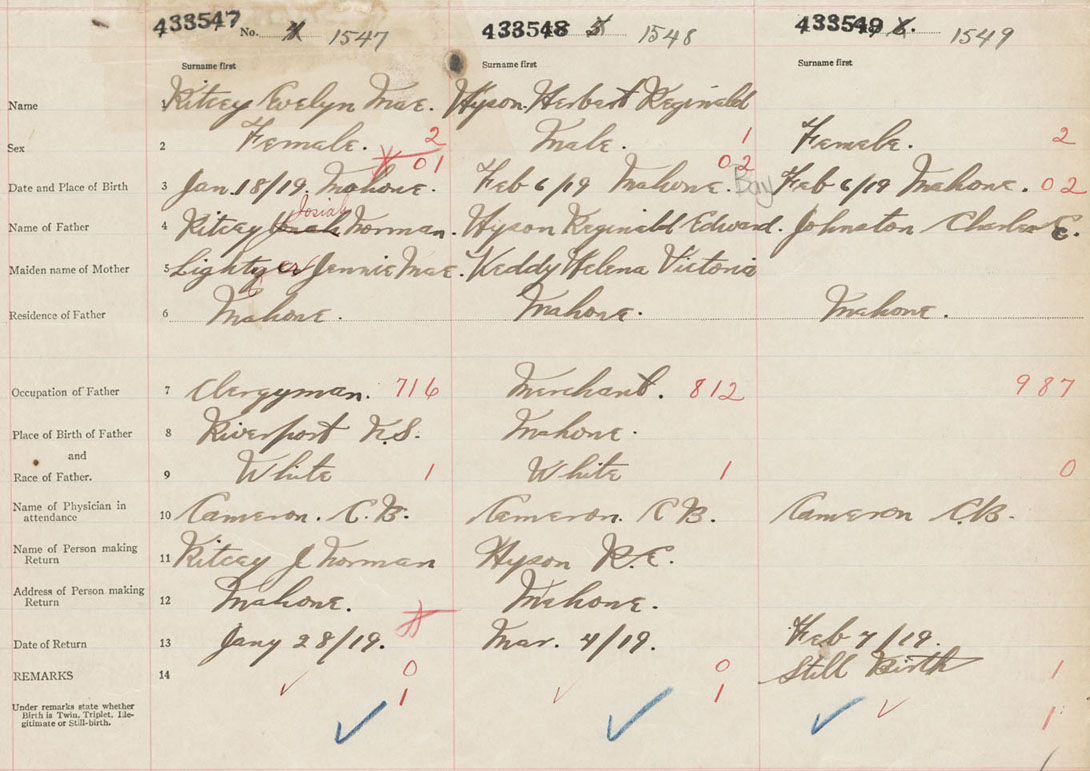 433547 No. 1547 433548 5 1548 433549 6. 1549
Surname first Surname first Surname first
Name 1 Ritcey Evelyn Mae. Hyson Herbert Reginald
Sex 2 Female. 2 Male. 1 Female. 2
01 02
Date and Place of Birth 3 Jan. 18/19. Mahone. Feb 6/19 Mahone. Bay Feb 6/19 Mahone. 02
Josiah
Name of Father 4 Ritcey Norman. Hyson Reginald Edward. Johnston Charles E.
Maiden name of Mother 5 Jennie Mae. Keddy Helena Victoria
Residence of Father 6 Mahone. Mahone. Mahone.
Occupation of Father 7 Clergyman. 716 Merchant. 812 987
Place of Birth of Father 8 Riverport N.S. Mahone.
and
Race of Father. 9 White 1 White 1 0
Name of Physician in
attendance 10 Cameron. C.B. Cameron. C B. Cameron C.B.
Name of Person making
Return 11 Ritcey J Norman Hyson R.E.
Address of Person making
Return 12 Mahone. Mahone.
Date of Return 13 Jany 28/19. Mar. 4/19. Feb 7/19.
REMARKS 14 0 0 Still Birth 1
Under remarks state whether
Birth is Twin, Triplet, Ille-
gitimate or Still-birth. 1 1 1